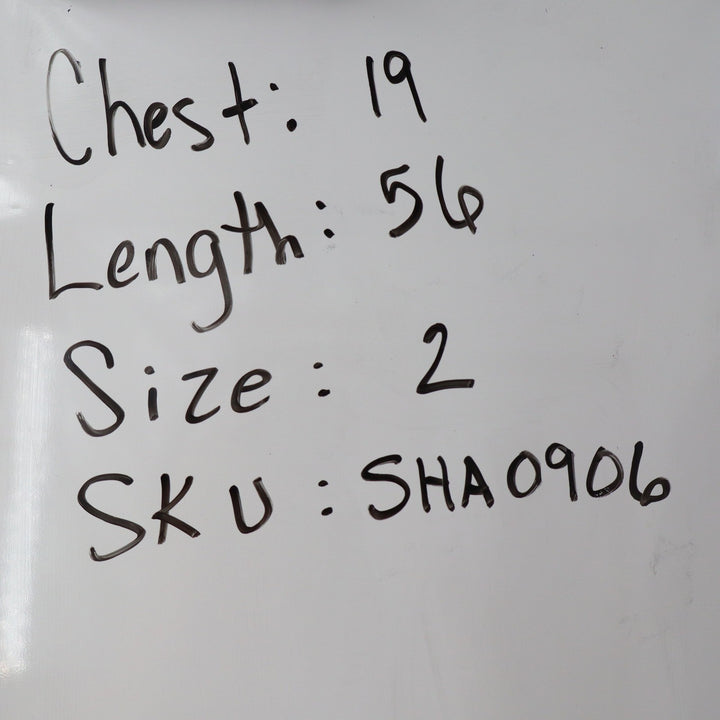 Chest: 19
Length: 56
Size: 2
SKU: SHA0906